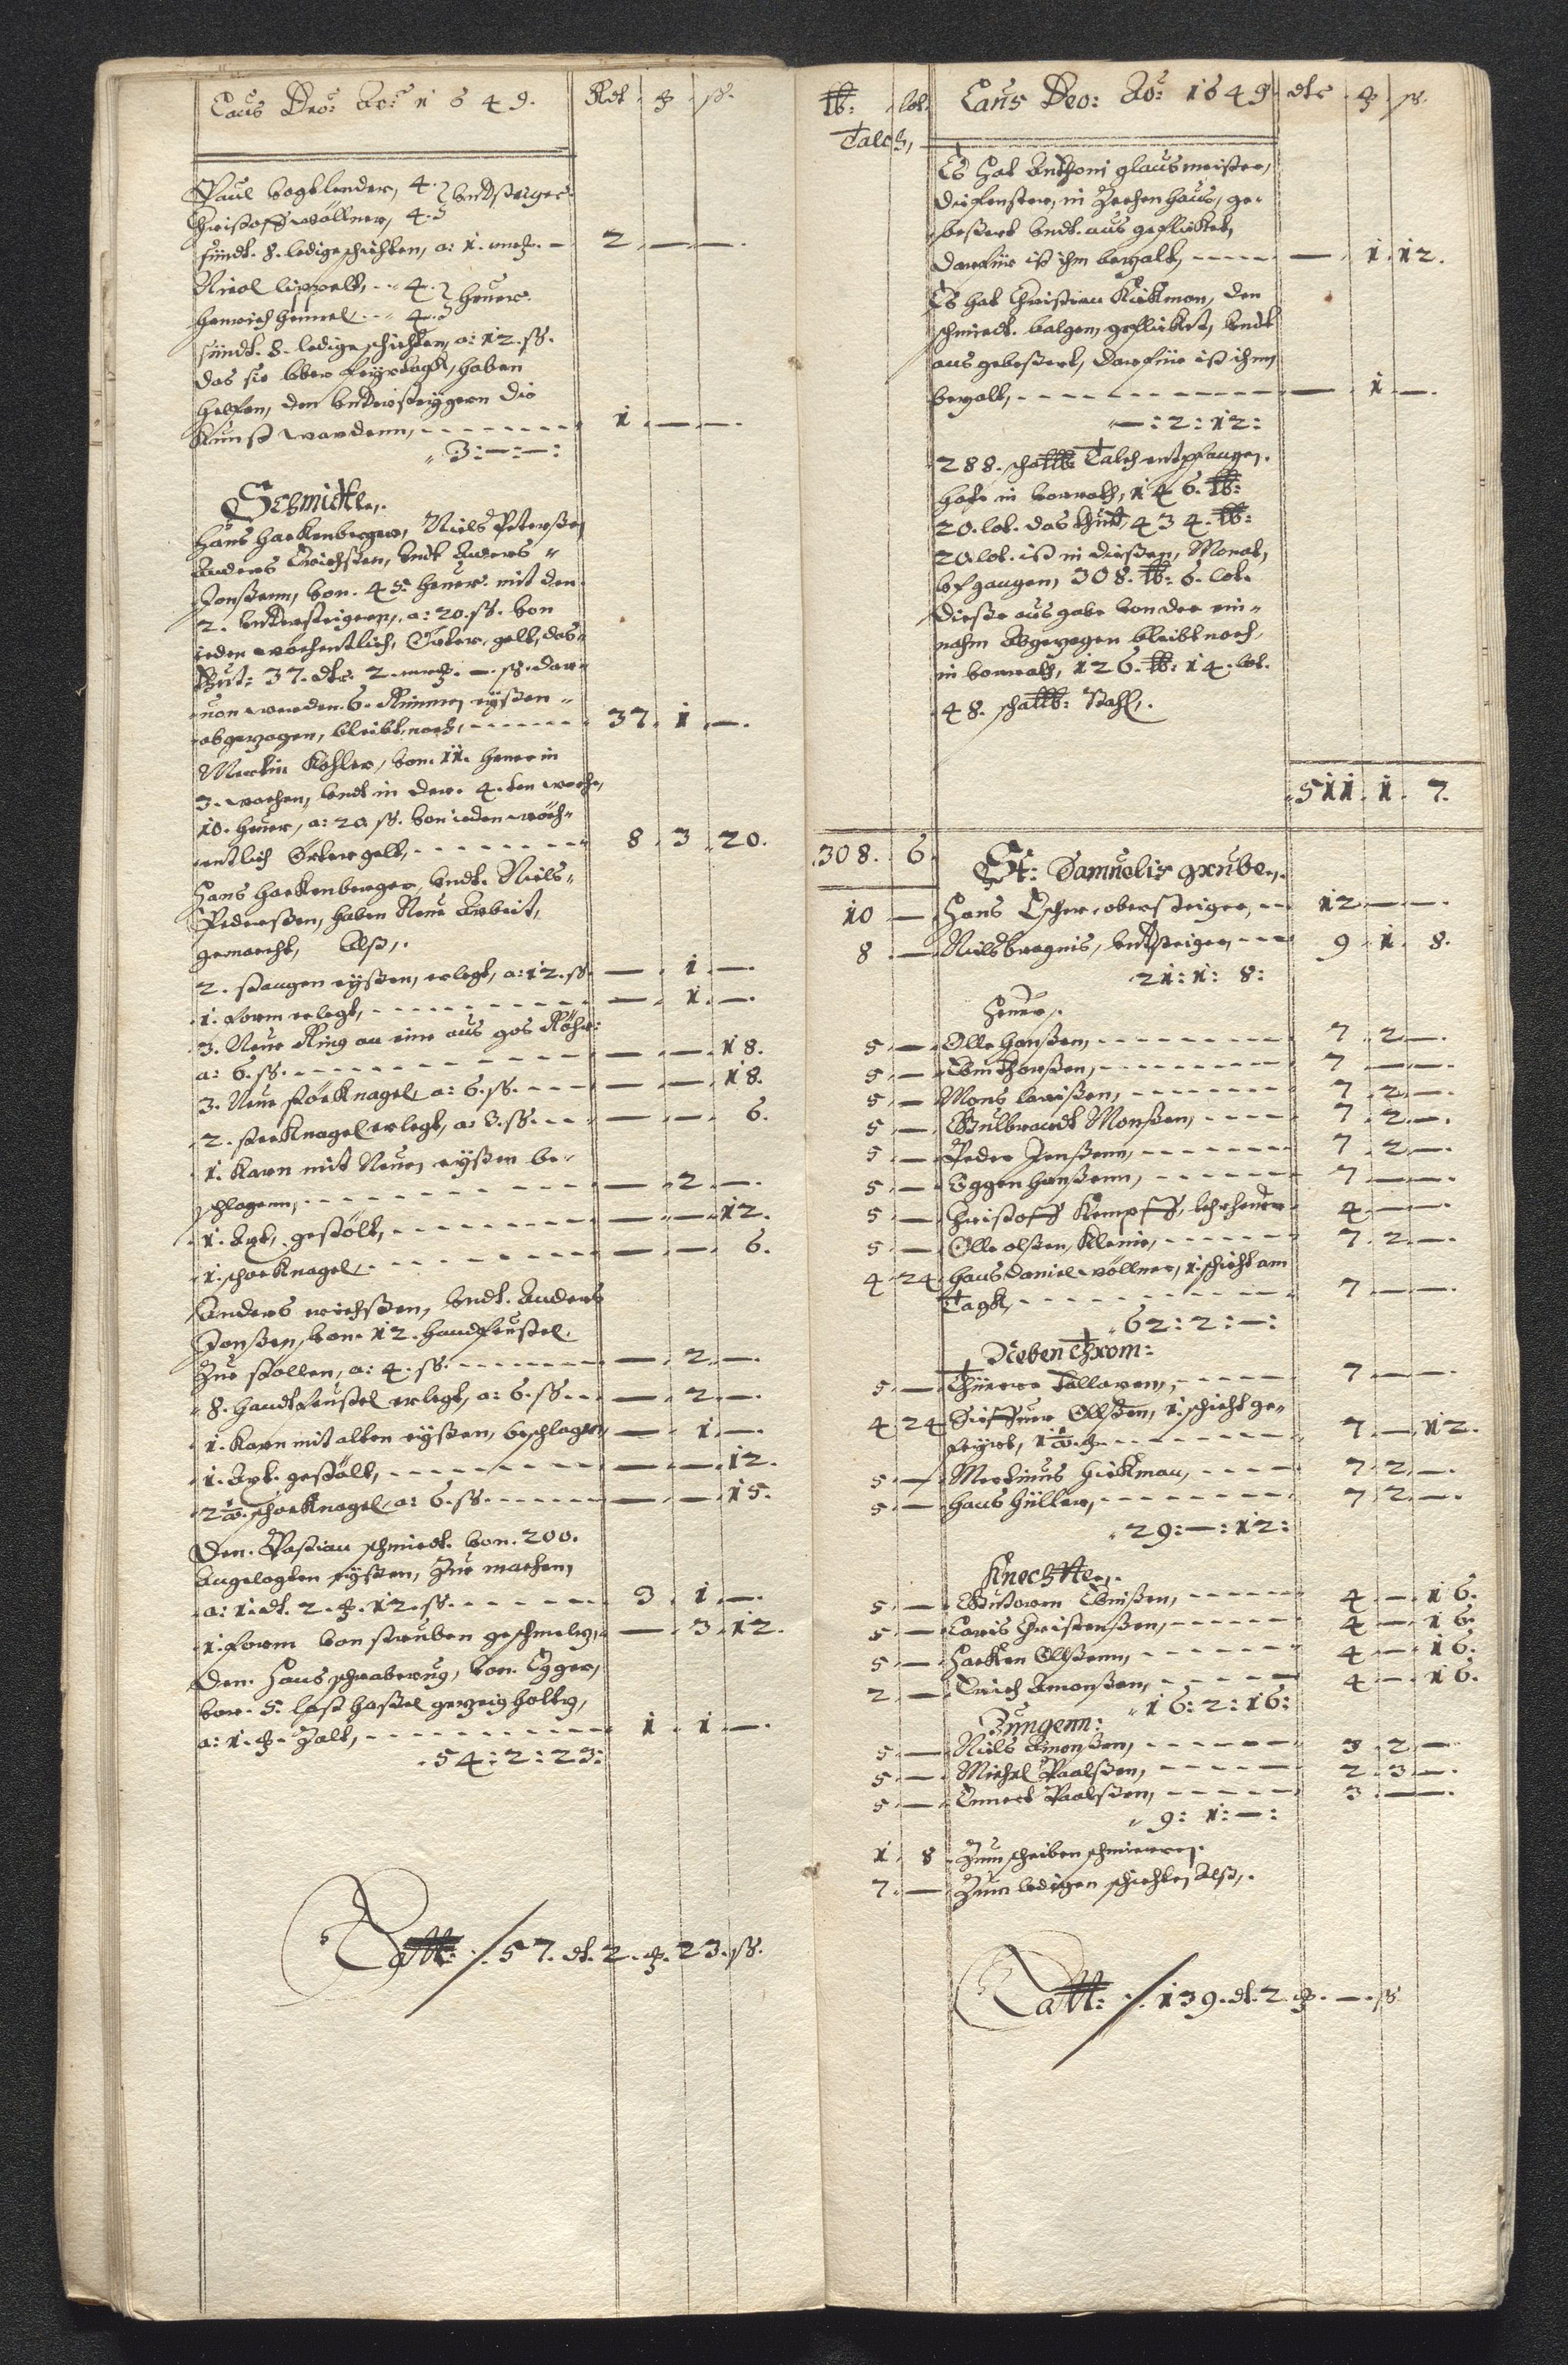 Laus Deo: Ao: 1649. Rdt. ȝ. ß.
Paul Vogtlender, 4. } Vndtsteiger
Christoff wöllner, 4. }
sindt. 8. ledige schichten, a: 1. mrȝ. — 2 — —.
Nicol lippolt, -- 4. } Heuer.
Henrich Himel, -- 4. }
sindt. 8. ledige schichten, a: 12. ß.
das sie vber feÿrtagk, haben
helfen, den Vndersteÿgern die
Kunst wardenn, - - - 1 — —.
3:—:—:
Schmidte,.
Hans Hackenberger, Niels Peterßen
Anders Erichßen, Vndt Anders
Jonßenn, von. 45. Heuer. mit den
2. Vndersteigern, a: 20. ß. von
ieden wöchentlich, Örter, gelt, das
thut: 37. dtr. 2. mrȝ. —. ß. dar
uon werden. 6. Rinnen eÿßen
abgezogen, bleibt noch, - - - 37. 1 —.
Mertin Köhler, von. 11. Heuer in
3. wochen, Vndt in der. 4. ten woche,
10. Heuer, a: 20 ß. von ieden wöch
entlich Örter gelt, - - - 8. 3. 20.
Hans Hackenberger, Vndt. Niels
Pederßen, haben Neue Arbeit,
gemacht, Alß,.
2. stangen eÿßen, erlegt, a: 12. ß. — 1 —.
1. form erlegt, - - - — 1 —.
3. Neue Ring an eine aus gos Röhr:
a: 6. ß. - - - — — 18.
3. Neue förKnagel, a: 6. ß. - - - — — 18.
2. storKnagel erlegt, a: 3. ß. - - - — — 6.
1. Karn mit Neuen eÿßen be
schlagenn, - - - — 2 —.
1. Axt, gestölt, - - - — — 12.
1. schorKnagel, - - - — — 6.
Anders erichßen, Vndt. Anders
Jonßen, von. 12. handtfeustel,
Zue stöllen, a: 4. ß. - - - — 2 —.
8. handtfeustel erlegt, a: 6. ß. - - - — 2 —.
1. Karn mit alten eÿßen, beschlagen — 1 —.
1. Axt. gestölt, - - - — — 12.
2½. schorKnagel, a: 6. ß. - - - — — 15.
Den. Bastian schmiedt. von. 200.
angelegten eÿßen, Zue machen,
a: 1. dt. 2. ȝ. 12. ß. - - - 3. 1 —.
1. form von struben geschmeltzt, — 3. 12.
Den. Hans von. Egger,
von. 5. last haßel gezeig holtz,
a: 1. ȝ. Zalt, - - - 1. 1 —.
54: 2: 23:
Latt: ./. 57. dt. 2. ȝ. 23. ß.
℔: lot. Laus Deo: Ao: 1649 dtr ȝ ß.
Talch,
Es hat Anthoni glausmeister,
die fenster, in Zechen Haus, ge
beßert Vndt. aus geflicket,
darfür ist ihm bezalt, - - - — 1. 12.
Es hat Christian Kickmon, den
schmiedt. balgen, geflicket, Vndt
aus gebeßert, darfür ist ihm
bezalt, - - - — 1 —.
—: 2: 12:
288. scha℔: Talch entpfangen.
Hafe in vorrath, 146. ℔:
20. lot. das thutt, 434. ℔:
20. lot. ist in dießen, Monat,
vfgangen, 308. ℔: 6. lot.
dieße aus gabe von der ein
nahm Abgezogen bleibt noch,
in vorrath, 126. ℔: 14. lot.
48. scha℔: Stahl,.
511. 1. 7.
308. 6.
St: Samuelis grube,.
10 — Hans Escher, obersteiger, -- 12 — —.
8 — Niels bragnis, Vndtsteiger, -- 9. 1. 8.
21: 1: 8:
Heuer,.
5 — Olle Hanßen, - - - 7. 2 —.
5 — Thorßen, - - - 7 — —.
5 — Mons larißen, - - - 7. 2 —.
5 — Gulbrandt Monßen, - - - 7. 2 —.
5 — Peder Jenßenn, - - - 7. 2 —.
5 — Eggen Hanßenn, - - - 7 — —.
5 — Christoff Kempff, lehrheuer 4 — —.
5 — Olle olßen, Kleine, - - - 7. 2 —.
4. 24 Hans Daniel wöllner, 1. schicht am
Tagk, - - - 7 — —.
62: 2: —:
Neben Chrom:
5 — Thürre Tallaren, - - - 7 — —.
4. 24 Siffuer Ollßen, 1. schicht ge
feÿrt, 1½. ȝ. - - - 7 — 12.
5 — Mertinus Hickman, - - - 7. 2 —.
5 — Hans Hüller, - - - 7. 2 —.
29: —: 12:
Knechtte,.
5 — Guttorm Einßen, - - - 4 — 16.
5 — Laris Christenßen, - - - 4 — 16.
5 — Hacken Ollßenn, - - - 4 — 16.
2 — Erich Amonßen, - - - 4 — 16.
16: 2: 16:
Jungenn:
5 — Niels Amonßen, - - - 3. 2 —
5 — Michel Paalßen, - - - 2. 3 —.
5 — Einert Paalßen, - - - 3 — —.
9: 1: —:
1. 8 Zum scheiben schmieren,.
7. — Zum ledigen schichten Alß,.
Latt: ./. 139. dt. 2. ȝ. —. ß